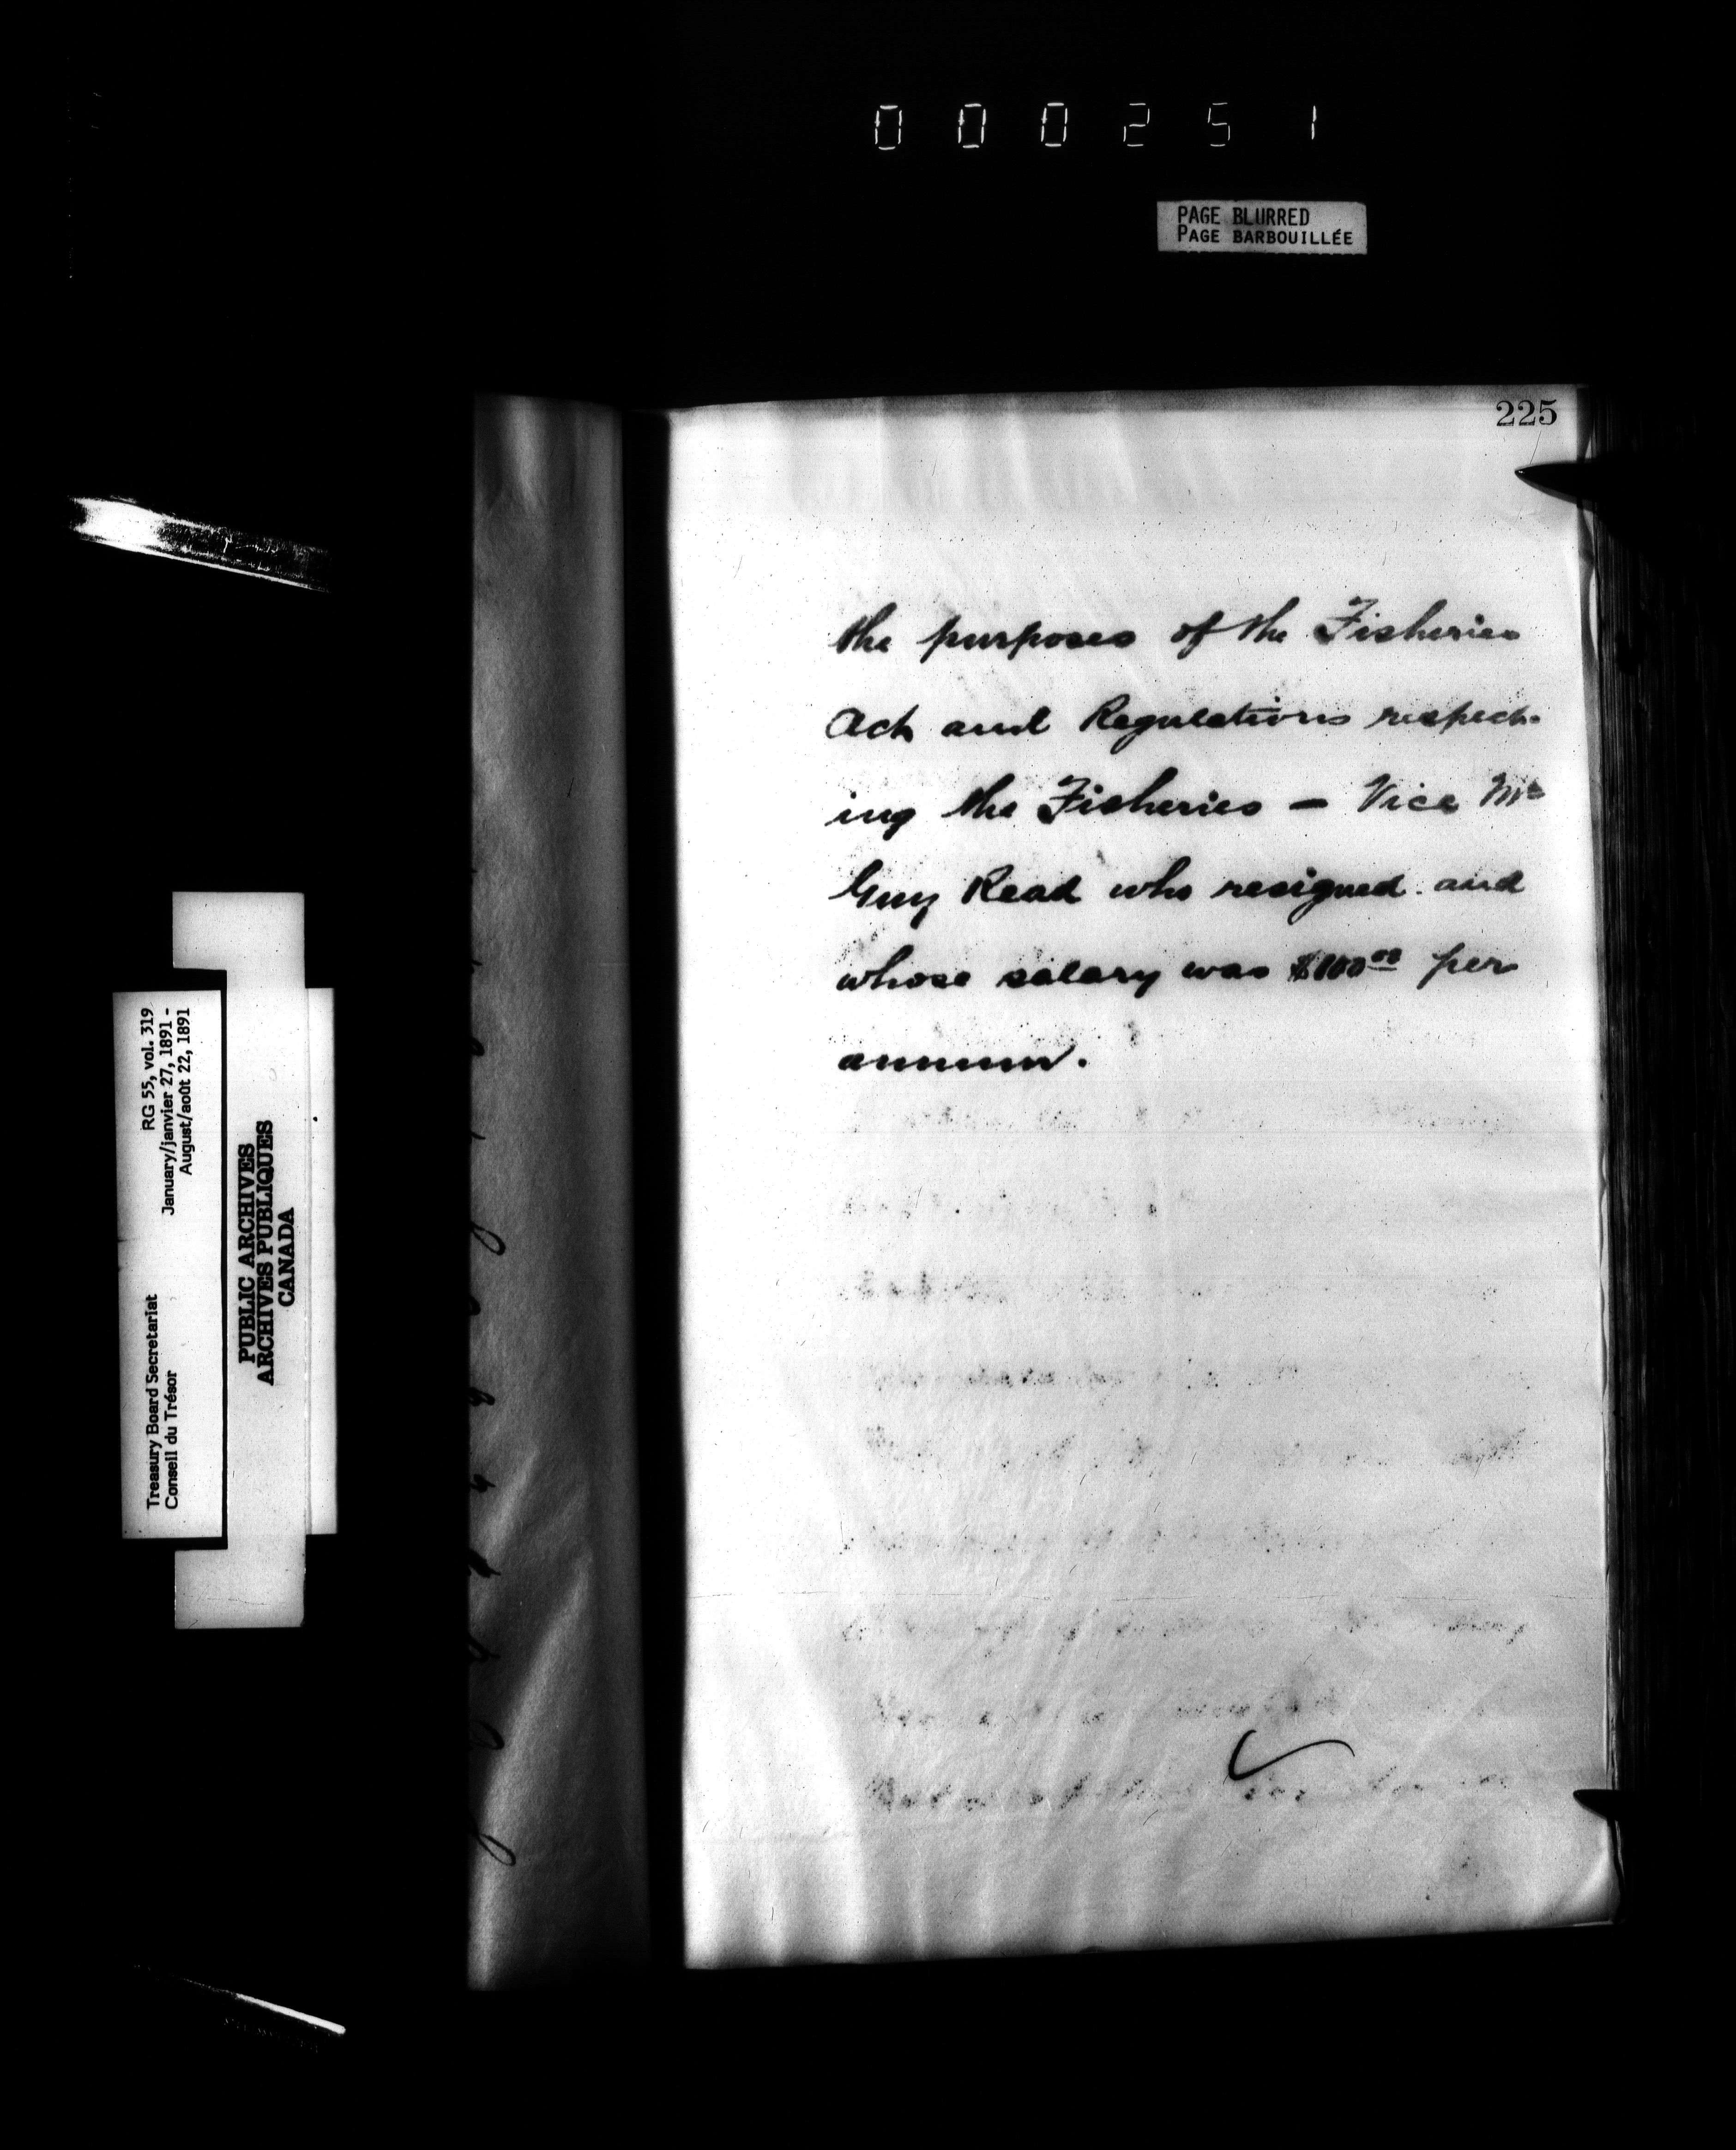 000251
PAGE BLURRED
PAGE BARBOUILLÉE
225
the purposes of the Fisheries
Act and Regulations respect-
ing the Fisheries — Vice Mr
Guy Read who resigned and
whose salary was $100.00 per
annum.
RG 55, vol. 319
January/janvier 27, 1891 -
August/août 22, 1891
Treasury Board Secretariat
Conseil du Trésor
PUBLIC ARCHIVES
ARCHIVES PUBLIQUES
CANADA